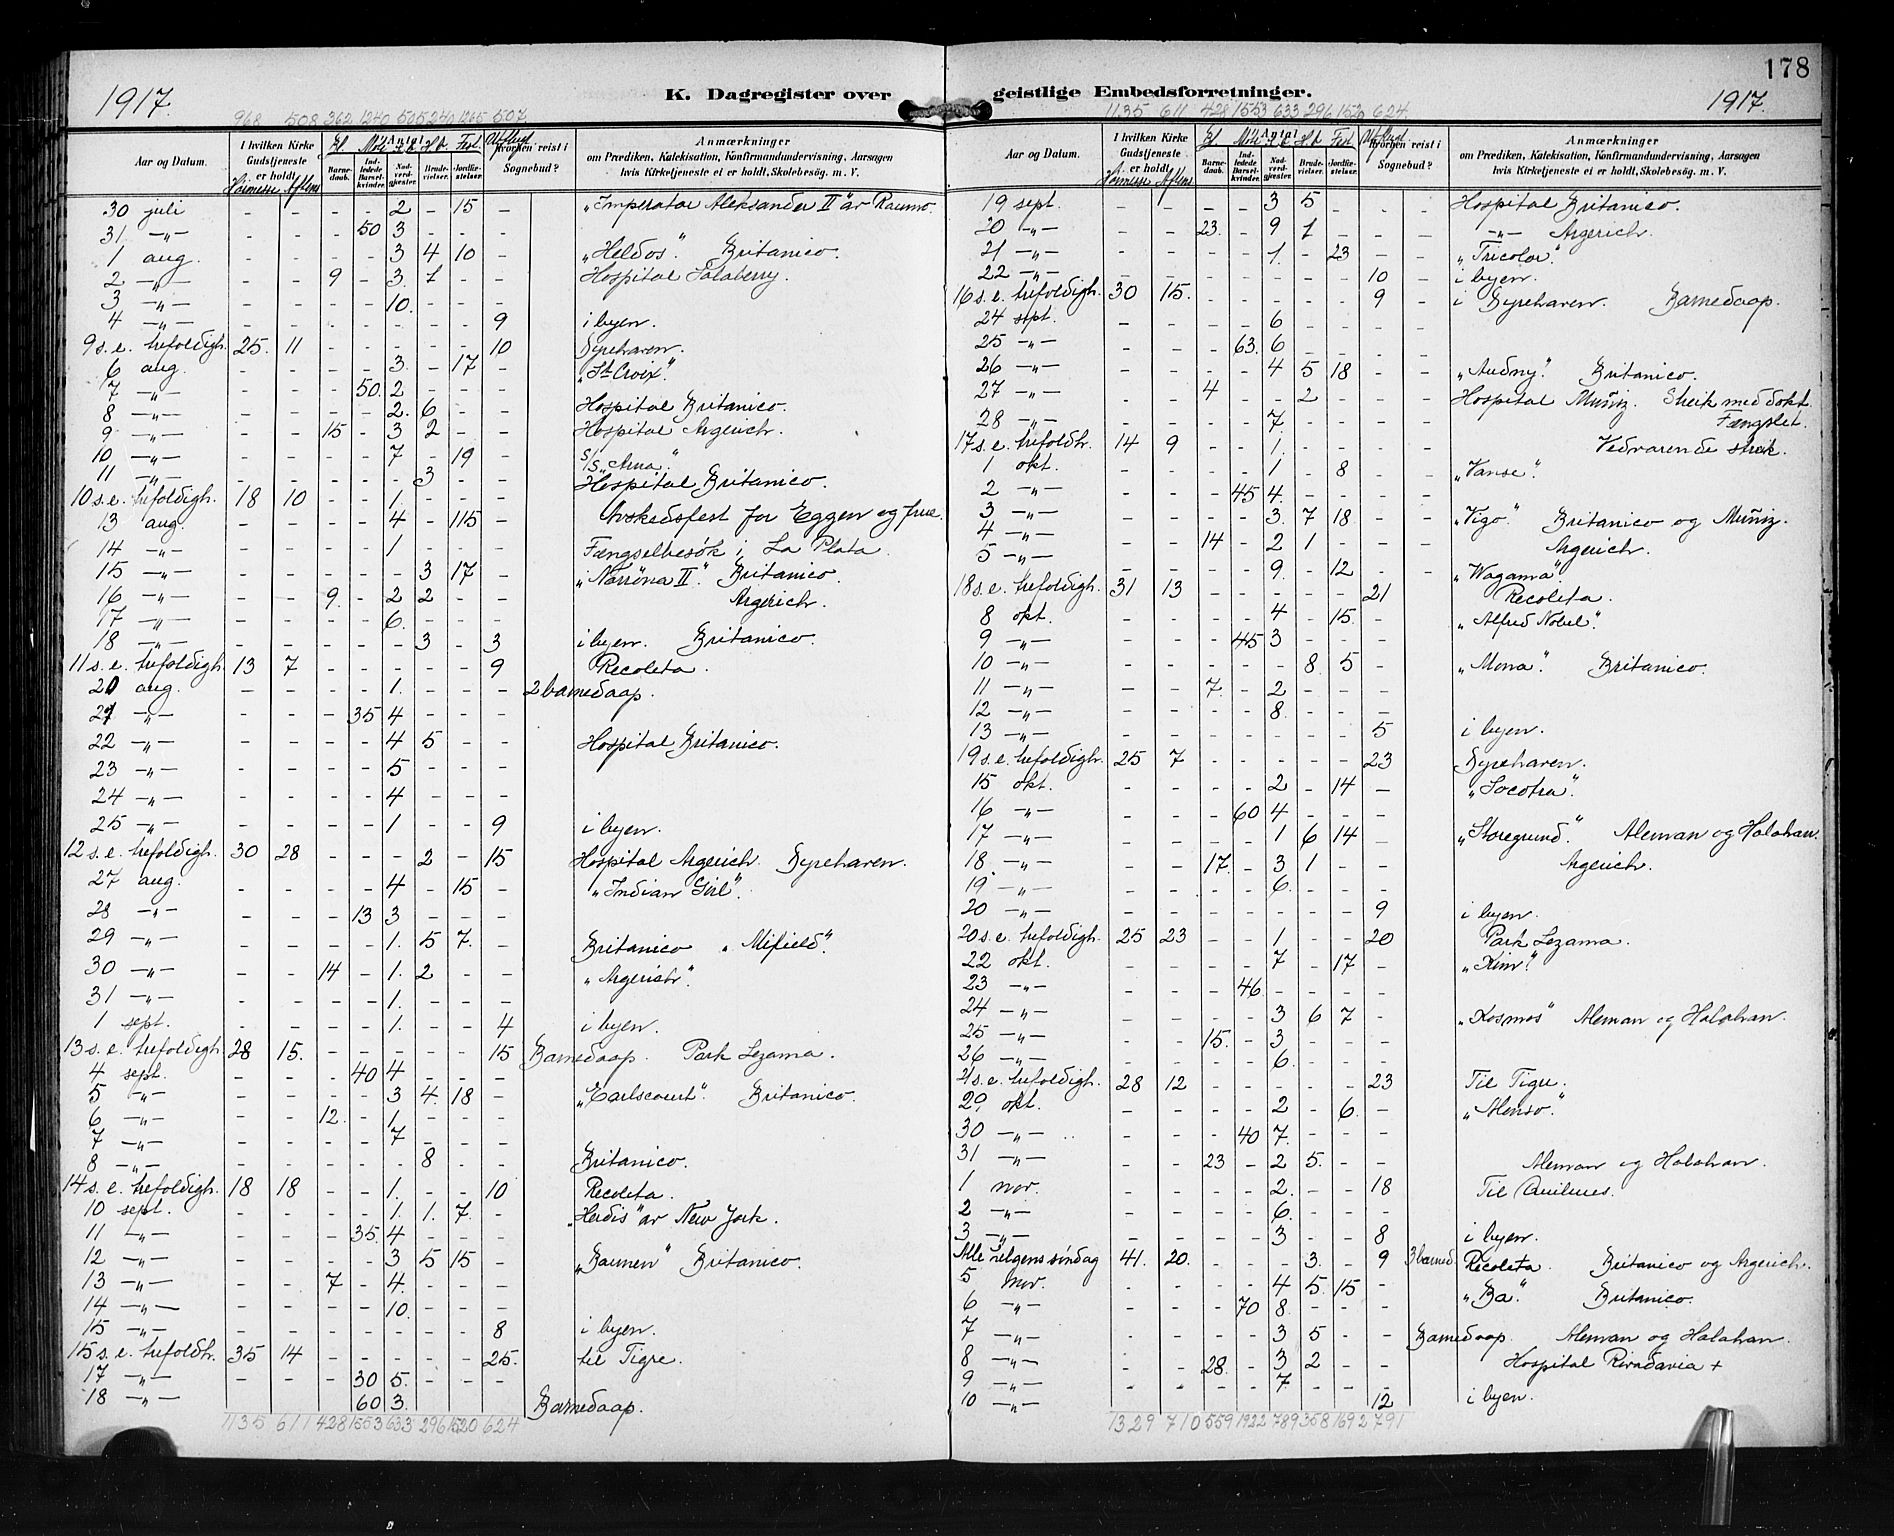 178
1917.
K. Dagregister over
968 508 362 1240 505 240 1265 507
Aar og Datum.
I hvilken Kirke Gudstjeneste er holdt.
Höimesse Aftens
Antal
Barnedaab.
Indledede Barselkvinder.
Nadverdgjester.
Brudevielser.
Jordfæstelser.
Hvorhen reist i Sognebud?
Anmærkninger
om Prædiken, Katekisation, Konfirmandundervisning, Aarsagen
hvis Kirketjeneste ei er holdt, Skolebesøg. m. V.
30 juli - - - - 2 - 15 - „Imperator Aleksander II" av Raumo.
31 -„- - - - 50 3 - - -
1 aug. - - - - 3 4 10 - „Heldos". Britanico.
2 -„- - - 9 - 3 1 - - Hospital Salaberry.
3 -„- - - - - 10. - - -
4 -„- - - - - - - - 9 i byen.
9 s. e. trefoldigh. 25. 11 - - - - - 10 Dyrehaven.
6 aug. - - - - 3. - 17 - „St Croix."
7 -„- - - - 50. 2 - - -
8 -„- - - - - 2. 6 - - Hospital Britanico.
9 -„- - - 15 - 3 2 - - Hospital Argerich.
10 -„- - - - - 7 - 19 - S/S „Arna."
11 -„- - - - - - 3 - - Hospital Britanico.
10 s. e. trefoldigh. 18 10 - - 1. - - -
13 aug. - - - - 4 - 115 - Avskedsfest for Eggen og frue.
14 -„- - - - - 1 - - - Fængselbesök i La Plata.
15 -„- - - - - - 3 17 - „Norröna II". Britanico.
16 -„- - - 9. - 2 2 - - Argerich.
17 -„- - - - - 6. - - -
18 -„- - - - - - 3 - 3 i byen. Britanico.
11 s. e. trefoldigh. 13 7 - - - - - 9 Recoleta.
20 aug. - - - - 1. - - - 2 barnedaap.
21 -„- - - - 35 4 - - -
22 -„- - - - - 4 5 - - Hospital Britanico.
23 -„- - - - - 5 - - -
24 -„- - - - - 4 - - -
25 -„- - - - - 1 - - 9 i byen.
12 s. e. trefoldigh. 30 28 - - - 2 - 15 Hospital Argerich. Dyrehaven.
27 aug. - - - - 4 - 15 - „Indian Girl".
28 -„- - - - 13 3 - - -
29 -„- - - - - 1. 5 7. - Britanico „Mifield."
30 -„- - - 14 - 1. 2 - - „Argerich".
31 -„- - - - - 1. - - -
1 sept. - - - - 1. - - 4 i byen.
13 s. e. trefoldigh. 28 15. - - - - - 15 Barnedaap. Park Lezama.
4 sept. - - - 40 4 - - -
5 -„- - - - - 3 4. 18 - „Earlscourt". Britanico.
6 -„- - - 12. - 1. - - -
7 -„- - - - - 7 - - -
8 -„- - - - - - 8 - - Britanico.
14 s. e. trefoldigh. 18 18 - - 1. - - 10 Recoleta.
10 sept. - - - - 1. 1. 7. - „Herdis" av New York.
11 -„- - - - 35. 4 - - -
12 -„- - - - - 3 5 15 - „Baunen" Britanico.
13 -„- - - 7 - 4. - - -
14 -„- - - - - 10. - - -
15 -„- - - - - - - - 8 i byen.
15 s. e. trefoldh. 35 14 - - - - - 25. til Tigre.
17 -„- - - - 30 5. - - -
18 -„- 60 3. Barnedaap.
1135 611 428 1553 633 296 1520 624
geistlige Embedsforretninger.
1917.
1135 611 428 1553 633 296 1520 624.
Aar og Datum.
I hvilken Kirke Gudstjeneste er holdt.
Höimesse Aftens
Antal
Barnedaab.
Indledede Barselkvinder.
Nadverdgjester.
Brudevielser.
Jordfæstelser.
Hvorhen reist i Sognebud?
Anmærkninger
om Prædiken, Katekisation, Konfirmandundervisning, Aarsagen
hvis Kirketjeneste ei er holdt, Skolebesøg. m. V.
19 sept. - - - - 3 5 - - Hospital Britanico.
20 -„- - - 23. - 9 1 - - -„- Argerich.
21 -„- - - - - 1. - 23 - „Tricolor."
22 -„- - - - - - - - 10 i byen.
16 s. e. trefoldigh. 30 15. - - - - - 9 i Dyrehaven. Barnedaap.
24 sept. - - - - 6 - - -
25 -„- - - - 63. 6 - - -
26 -„- - - - - 4 5 18 - „Audny". Britanico.
27 -„- - - 4 - - 2 - - Hospital Muñiz. Streik med dokt.
28 -„- - - - - 7. - - - Fængslet.
17 s. e. trefoldh. 14 9 - - 1. - - - Vedvarende streik.
1 okt. - - - - 1 - 8 - „Vanse".
2 -„- - - - 45 4. - - -
3 -„- - - - - 3. 7 18. - „Vigo". Britanico og Muñiz.
4 -„- - - 14 - 2 1 - - Argerich.
5 -„- - - - - 9. - 12 - „Wagama".
18 s. e. trefoldigh. 31 13 - - - - - 21 Recoleta.
8 okt. - - - - 4 - 15. - „Alfred Nobel".
9 -„- - - - 45 3 - - -
10 -„- - - - - - 8. 5 - „Mona". Britanico.
11 -„- - - 7. - 2 - - -
12 -„- - - - - 8. - - -
13 -„- - - - - - - - 5 i byen.
19 s. e. trefoldigh. 25 7 - - - - - 23 Dyrehaven.
15 okt. - - - - 2 - 14 - „Socotra".
16 -„- - - - 60 4 - - -
17 -„- - - - - 1 6 14 - „Storegrund". Aleman og Halahan.
18 -„- - - 17. - 3 1 - - Argerich.
19 -„- - - - - 6. - - -
20 -„- - - - - - - - 9 i byen.
20 s. e. trefoldigh. 25 23 - - 1 - - 20 Park Lezama.
22 okt. - - - - 7 - 17 - „Kim".
23 -„- - - - 46. - - - -
24 -„- - - - - 3 6 7 - „Kosmos" Aleman og Halahan.
25 -„- - - 15. - 3 - - -
26 -„- - - - - 6. - - -
21 s. e. trefoldigh. 28 12 - - - - - 23 Til Tigre.
29 okt. - - - - 2 - 6. - „Alonso".
30 -„- - - - 40 7. - - -
31 -„- - - 23 - 2 5. - - Aleman og Halahan.
1 nov. - - - - 2. - - 18 Til Quilmes.
2 -„- - - - - 6. - - -
3 -„- - - - - 3 - - 8 i byen.
Alle helgens söndag 41. 20. - - - 3. - 9 3 barned. Recoleta. Britanico og Argerich.
5 nov. - - - - 4 5. 15 - „Ba". Britanico.
6 -„- - - - 70 8. - - -
7 -„- - - - - 3 5 - - Barnedaap. Aleman og Halahan.
8 -„- - - 28. - 3 2 - - Hospital Rivadavia +
9 -„- - - - - 7 - - -
10 -„- - - - - - - - 12 i byen.
1329 710 559 1922 789 358 1692 791